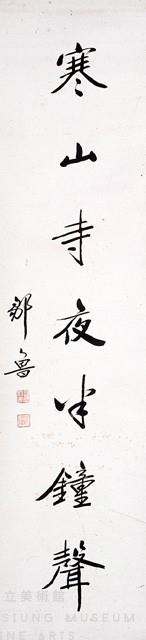 寒山寺夜半鐘聲
鄒魯
立美術館
SIUNG MUSEUM
INE ARTS